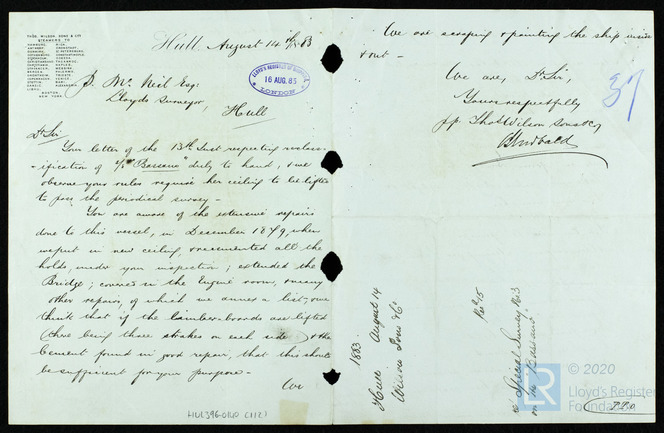 THOS. WILSON, SONS & Co.
STEAMERS TO
BOSTON,
NEW YORK.
Hull, August 14th 1883
LLOYD'S REGISTER OF SHIPPING
16 AUG. 83
LONDON
J. Mc Neil Esq:
Lloyds Surveyor,
Hull
Dr Sir
Your letter of the 13th Inst respecting reclass-
-ification of s/s "Bassano" duly to hand, & we
observe your rules require her ceiling to be lifted
to pass the periodical survey -
You are aware of the extensive repairs
done to this vessel, in December 1879, when
we put in new ceiling, & recemented all the
holds, under your inspection; extended the
Bridge; covered in the Engine room, & many
other repairs, of which we annex a list, we
think that if the limber-boards are lifted
(there being three strakes on each side) & the
Cement found in good repair, that this should
be sufficient for your purpose -
We
We are scraping & painting the ship inside
& out -
We are, Dr Sir,
Yours respectfully
pp Thos Wilson Sons & Co
37
1883
Hull August 14
Wilson Sons & Co
No 5
Special Survey No 3
on the Bassano
HUL396-0160 C(112)
© 2020
LR
Lloyd's Register
Foundation